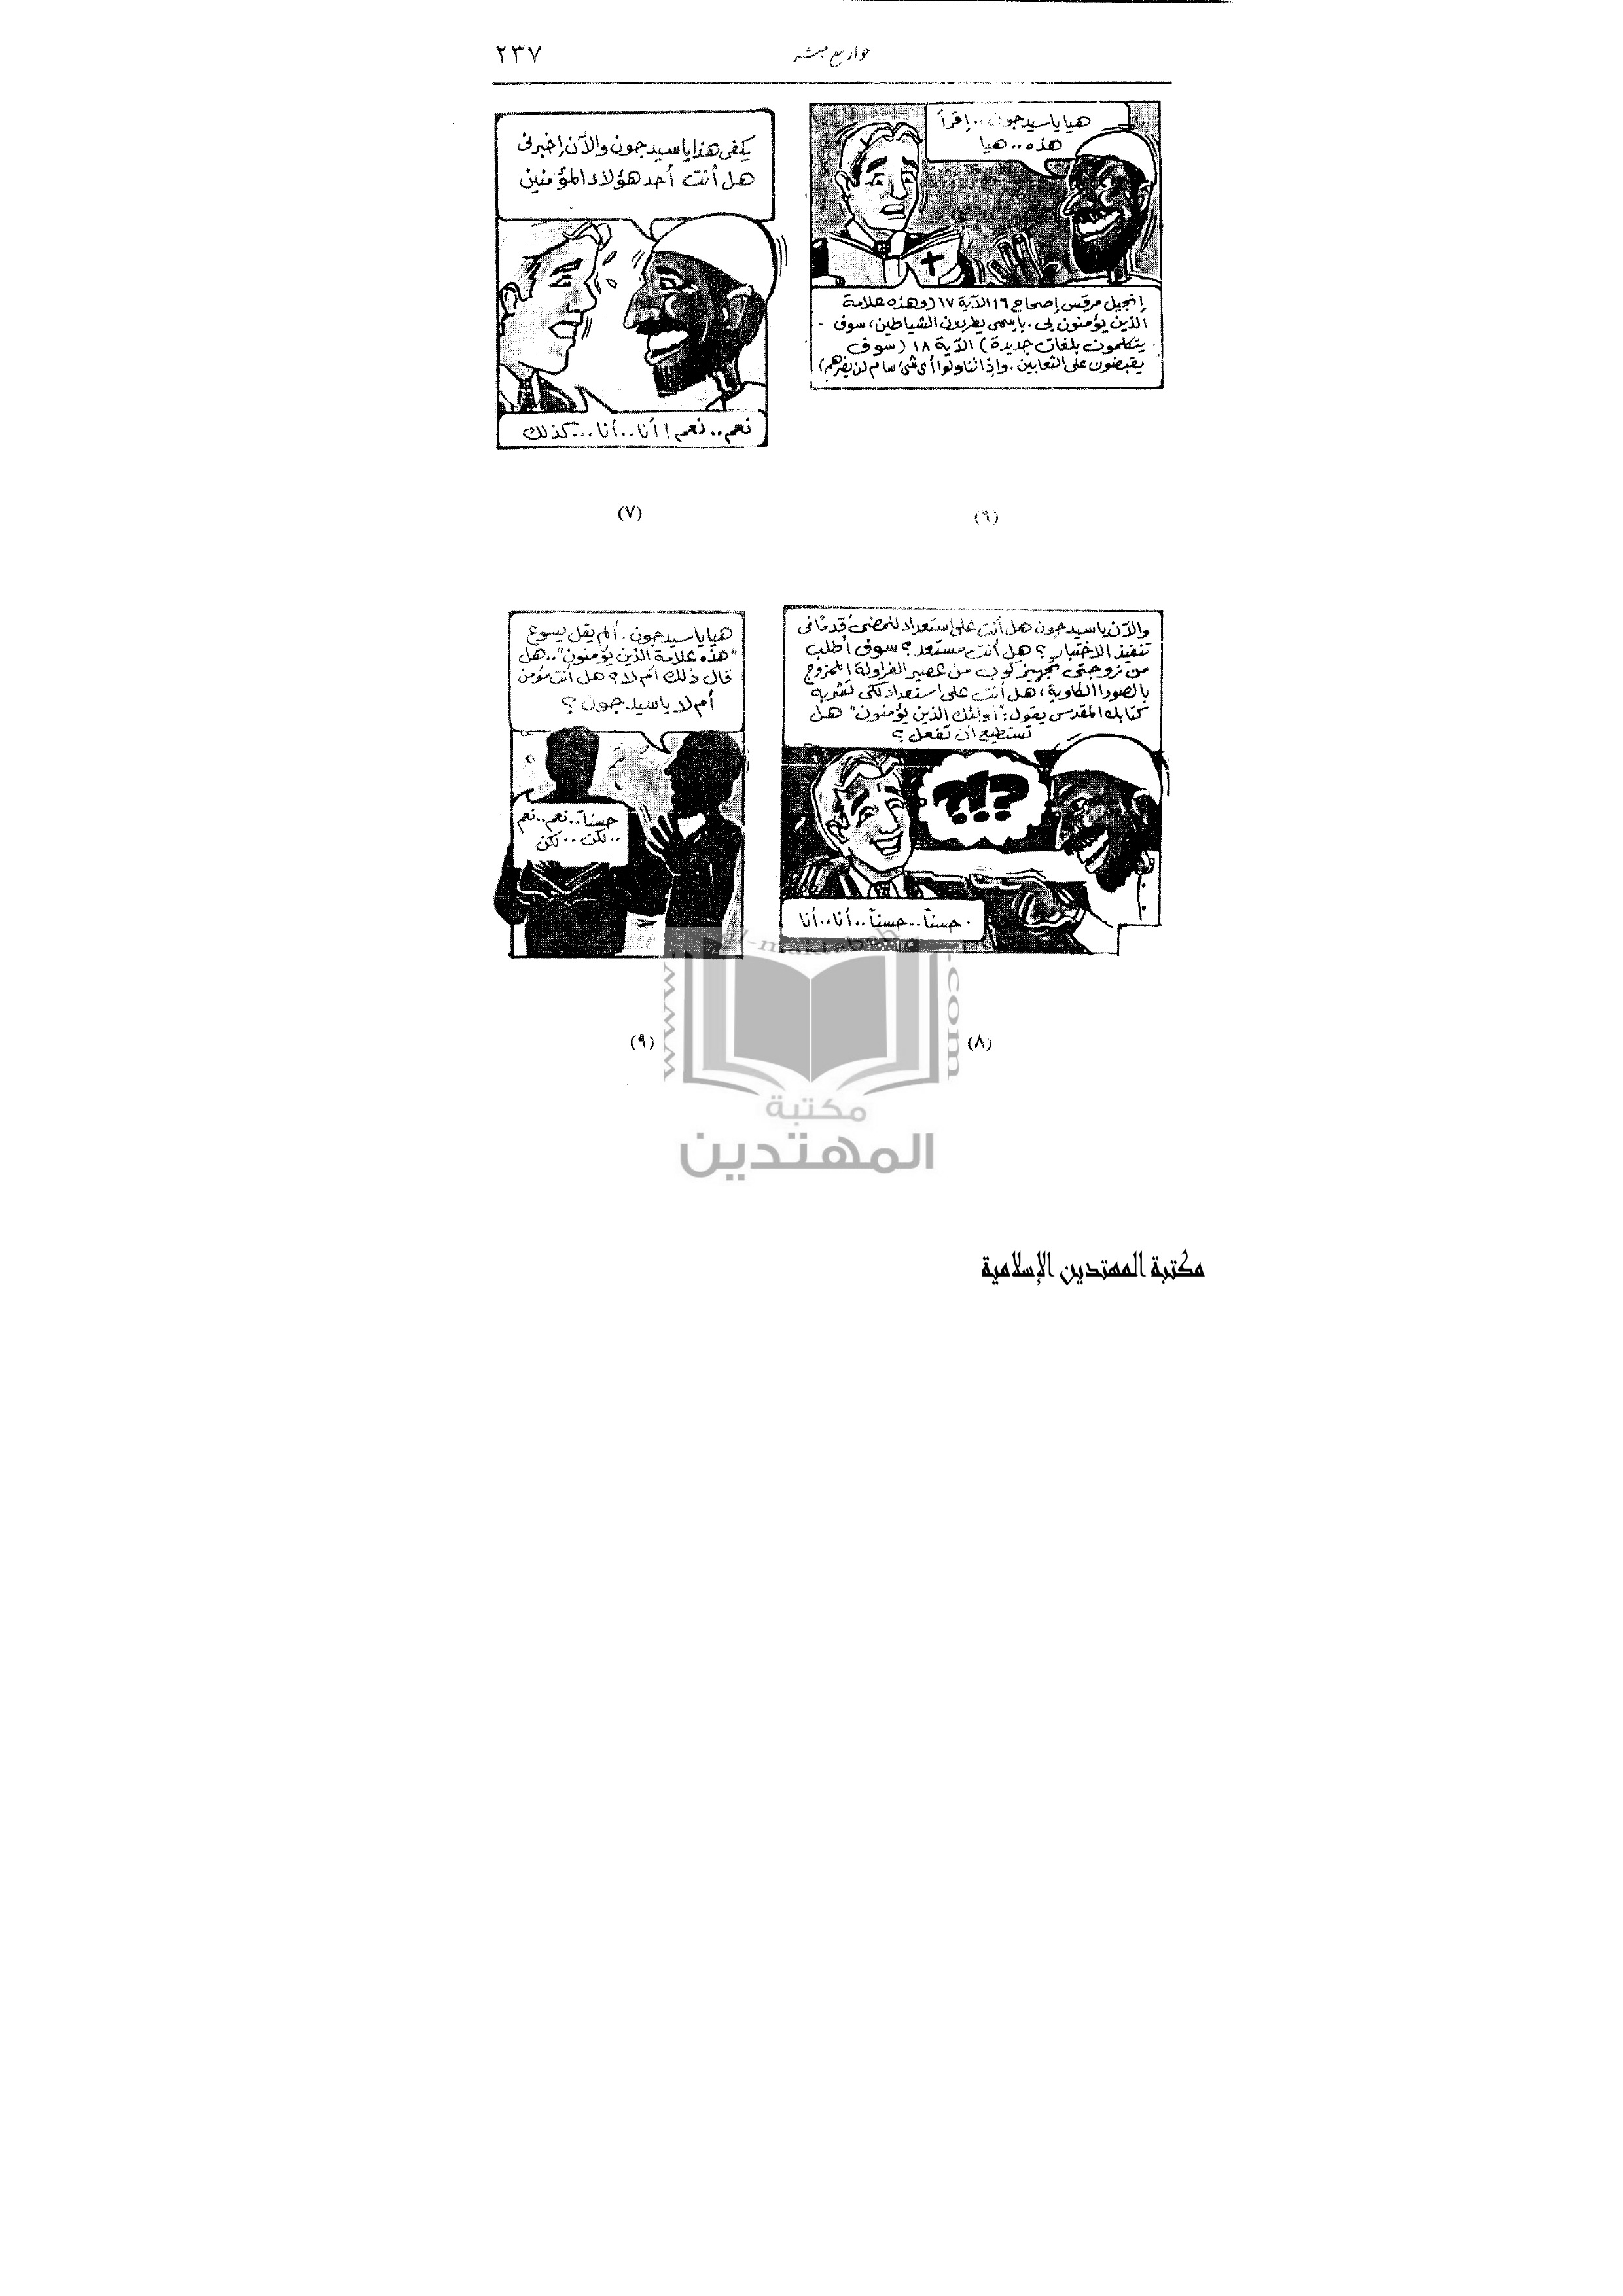 حوار مع مبشر
٢٣٧
هيا ياسيد جون..إقرأ
هذه..هيا
إنجيل مرقس إصحاح ١٦ الآية ١٧ (وهذه علامة
الذين يؤمنون بى. بإسمى يطردون الشياطين، سوف
يتكلمون بلغات جديدة) الآية ١٨ (سوف
يقبضون على الثعابين. وإذا تناولوا أى شئ سام لن يضرهم)
(٦)
يكفى هذا ياسيد جون والآن إخبرنى
هل أنت أحد هؤلاء المؤمنين
نعم.. نعم! أنا..أنا...كذلك
(٧)
والآن ياسيد جون هل أنت على إستعداد للمضى قدمًا فى
تنفيذ الاختبار؟ هل أنت مستعد؟ سوف أطلب
من زوجتى تجهيز كوب من عصير الفراولة الممزوج
بالصودا الكاوية، هل أنت على استعداد لكى تشربه
كتابك المقدس يقول: "أولئك الذين يؤمنون" هل
تستطيع أن تفعل؟
?!?
حسنًا..حسنًا..أنا..أنا
(٨)
هيا ياسيد جون. ألم يقل يسوع
"هذه علامة الذين يؤمنون"..هل
قال ذلك أم لا؟ هل أنت مؤمن
أم لا ياسيد جون؟
حسنًا..نعم..نعم
..لكن..لكن
(٩)
www.al-maktabeh.com
مكتبة
المهتدين
مكتبة المهتدين الإسلامية